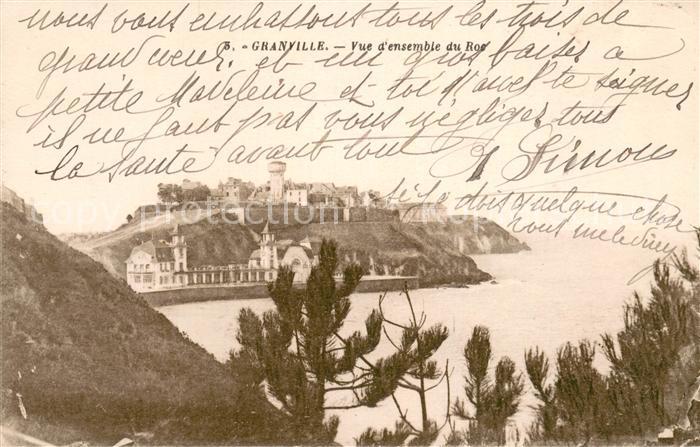 nous vous embrassons tous les trois de
grand coeur, et un gros baiser a
5. - GRANVILLE. - Vue d'ensemble du Roc
petite Madeleine et toi Marcel te soigner
il ne faut pas vous négliger tous
la santé avant tout
Simon
si je dois quelque chose
vous me le direz
copyright protection